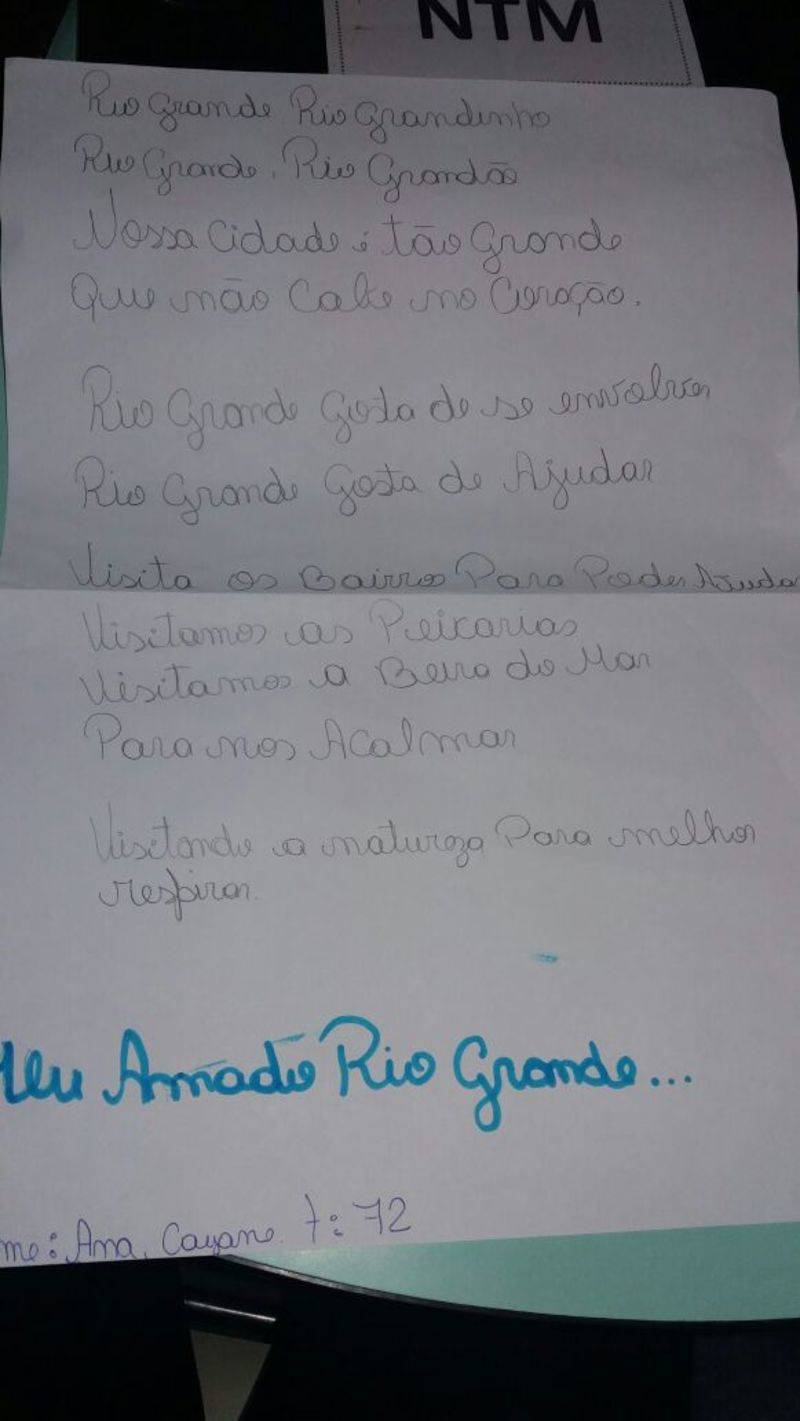 NTM
Rio Grande Rio Grandinho
Rio Grande, Rio Grandão
Nossa Cidade é tão Grande
Que não Cabe no Coração.
Rio Grande Gosta de se envolver
Rio Grande Gosta de Ajudar
Visita os Bairros Para Poder Ajudar
Visitamos as Peixarias
Visitamos a Beira do Mar
Para nos Acalmar
Visitando a natureza Para melhor
respirar.
Meu Amado Rio Grande...
me: Ana, Cayane. t: 72